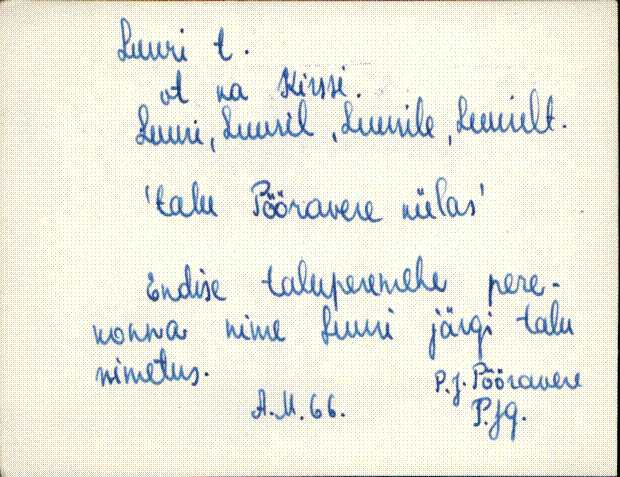 Suuri t.
vt ka Kirssi.
Suuri, Suuril, Suurile, Suurilt.
'talu Pööravere külas'
Endise taluperemehe pere-
konna nime Suuri järgi talu
nimetus.
A.M. 66. P.J. Pööravere
P.Jg.